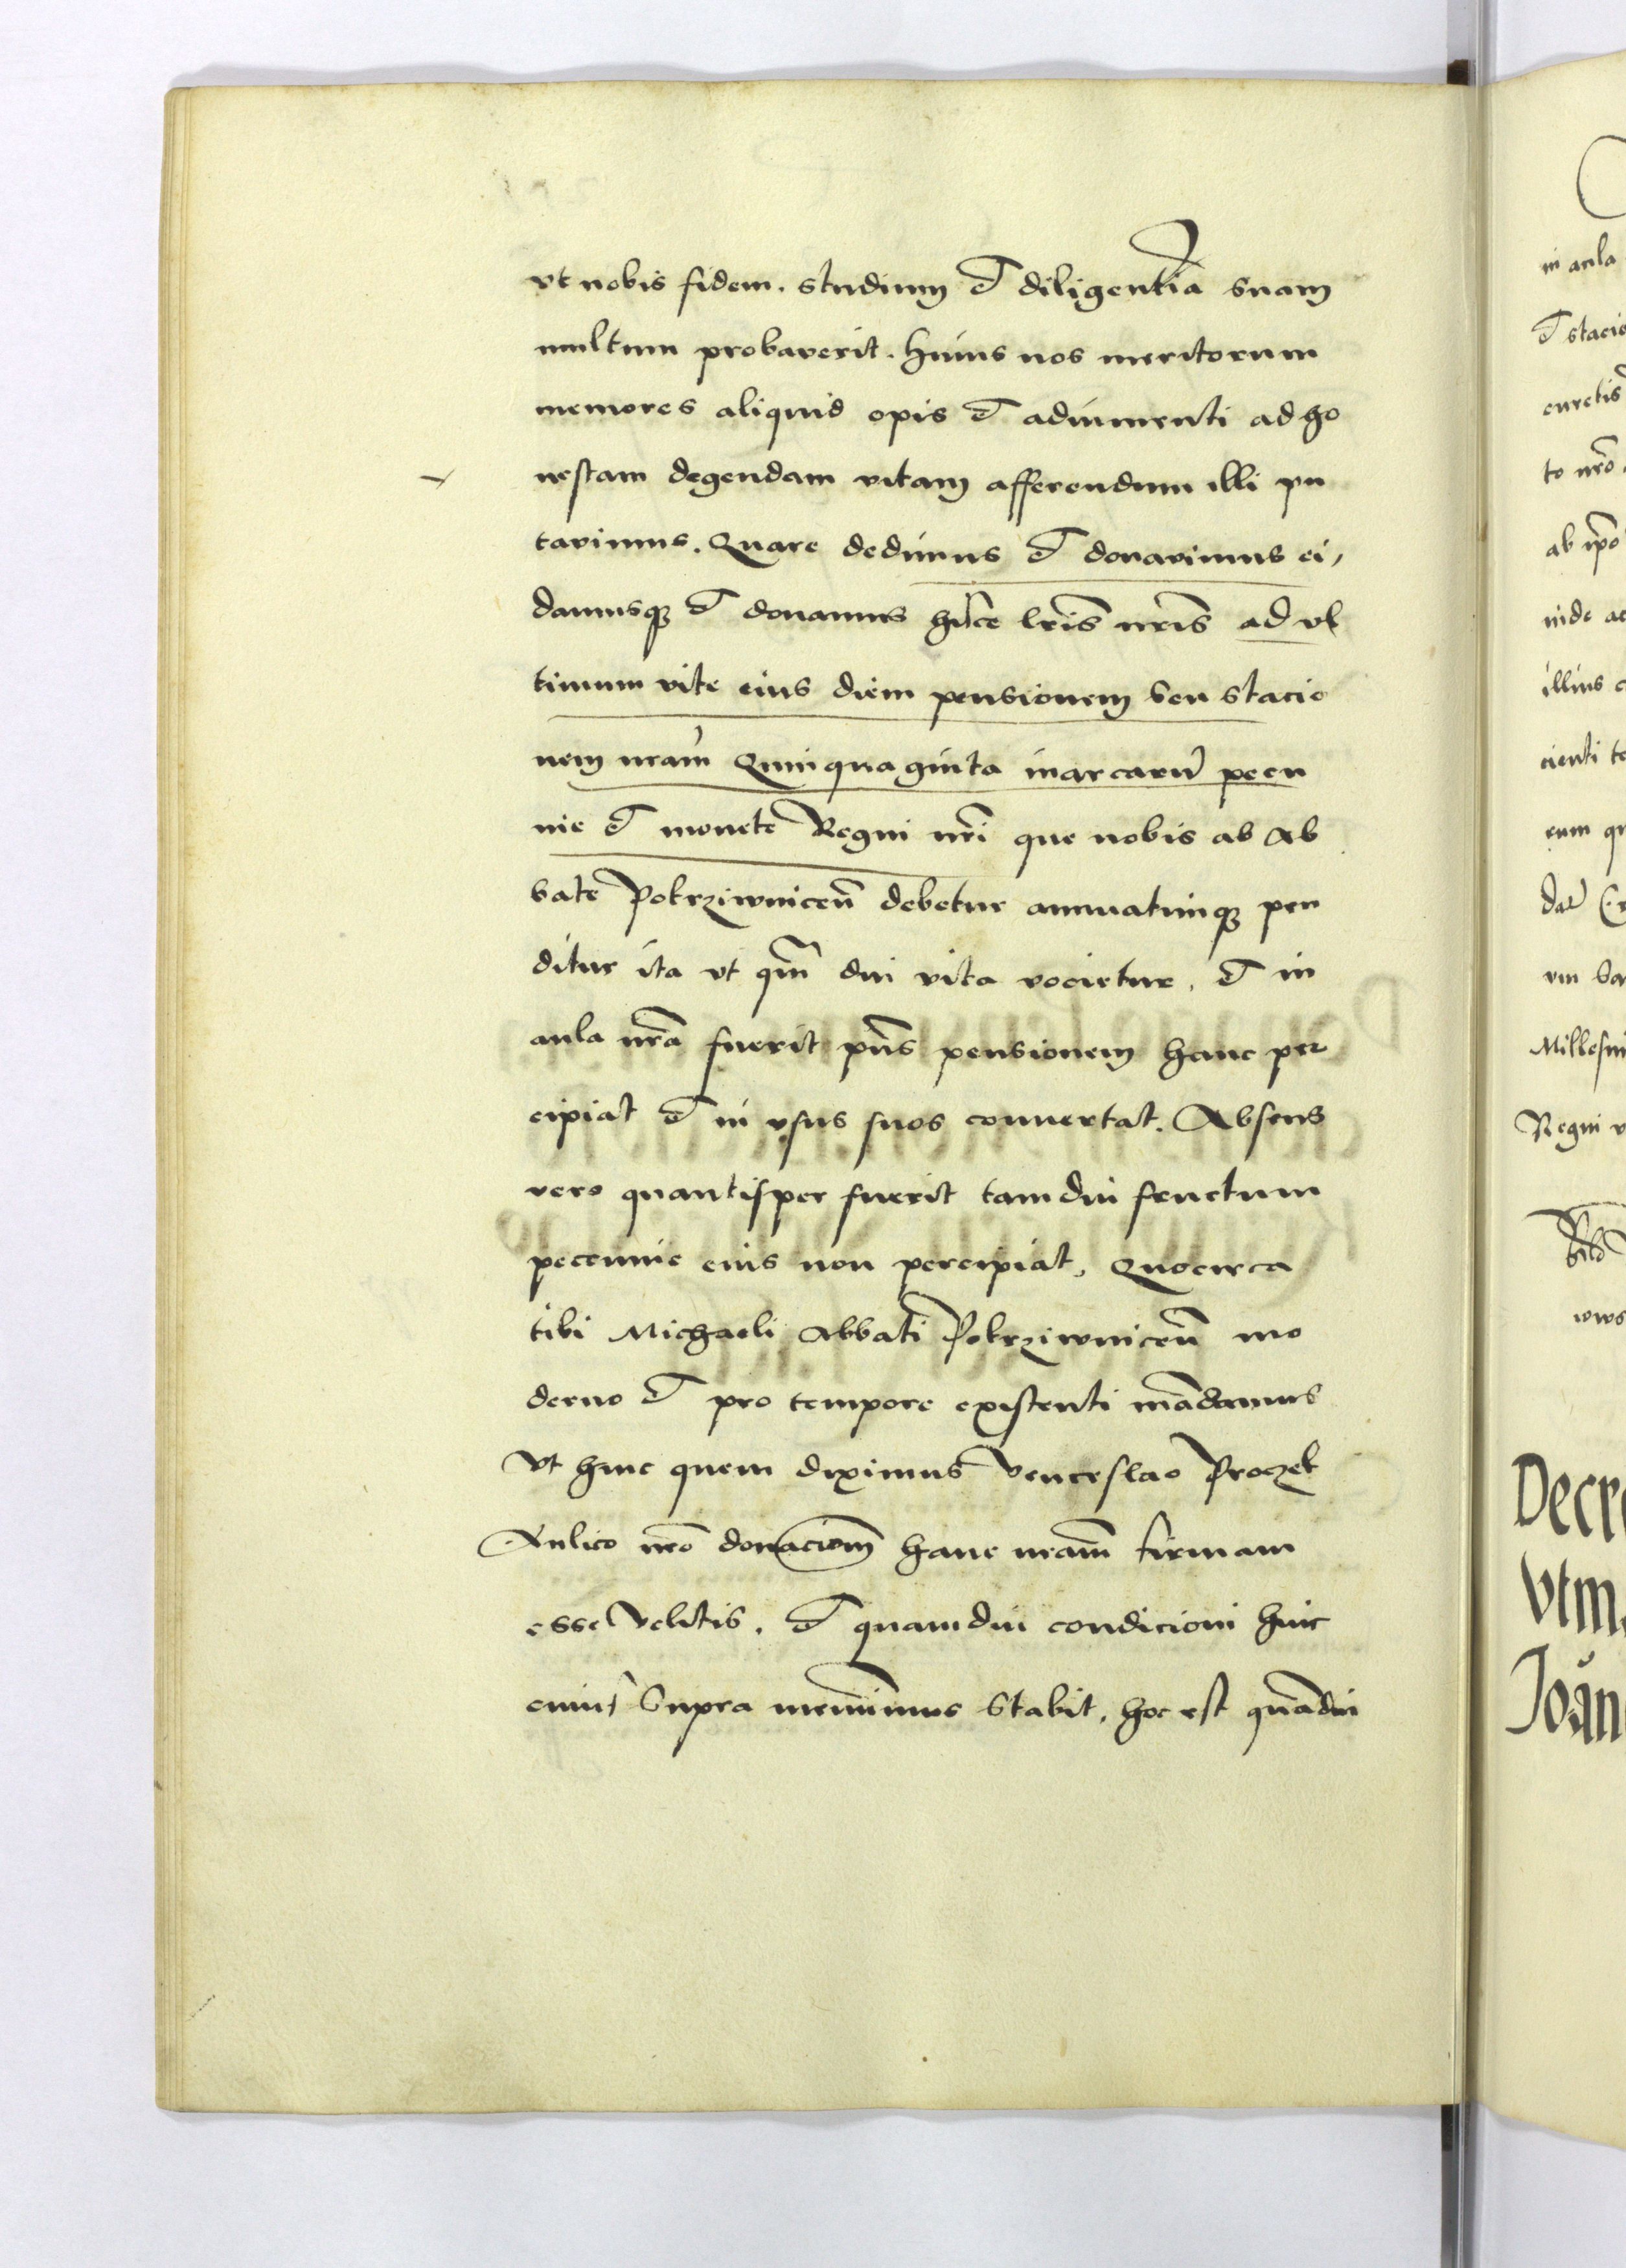 vt nobis fidem. studium et diligentia suam
multum probaverit. huius nos meritorum
memores aliquid opis et adiumenti ad ho
nestam degendam vitam afferendum illi pu
tavimus. Quare dedimus et donavimus ei,
damusq et donamus hisce lris nris ad vl
timum vite eius diem pensionem seu stacio
nem nram Quinquaginta marcaru pecu
nie et monete Regni nri que nobis ab Ab
bate Pokrziwnicen debetur annuatimq pen
ditur ita vt qm diu vita vocietur, et in
aula nra fuerit pns pensionem hanc per
cipiat et in vsus suos convertat. Absens
vero quantisper fuerit tamdiu fructum
pecunie eius non percipiat, Quocirca
tibi Michaeli Abbati Pokrziwnicen mo
derno et pro tempore existenti mandamus
Vt hunc quem diximus Venceslao Proczek
Aulico nro donaciom hanc nram firmam
esse velitis. et quamdiu condicioni huic
cuius supra meminimus stabit, hoc est quadiu
in aula
et stacio
to nro
ab ipo
inde ac
illius
eum qu
Millesim
Regni
Decre
vtm
Joan